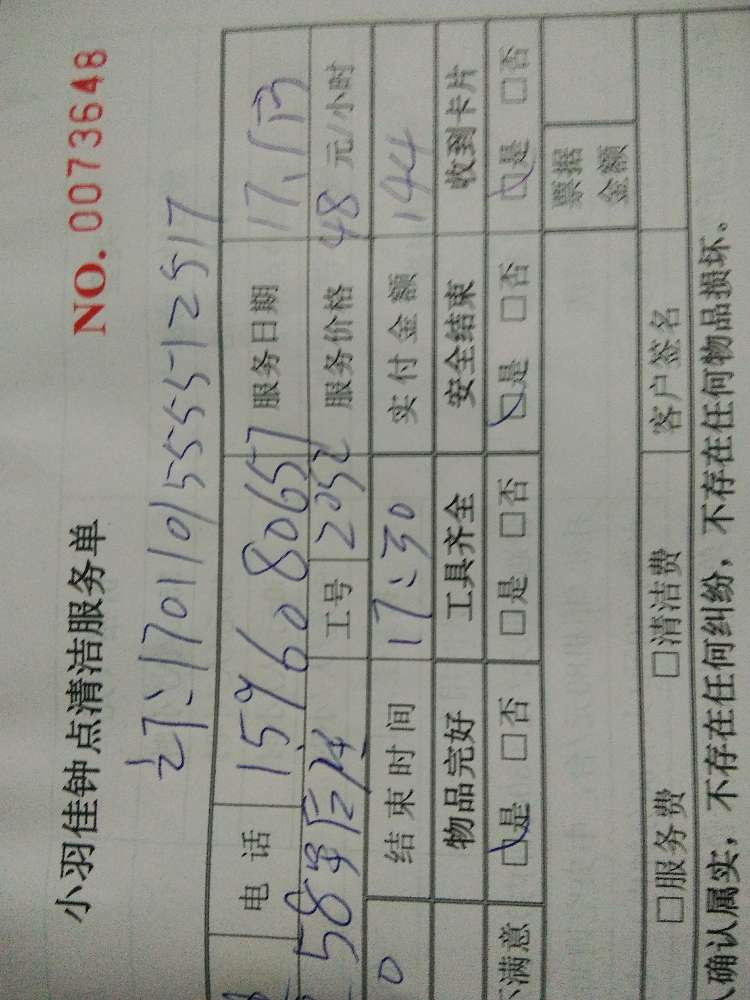 小羽佳钟点清洁服务单 NO. 0073648
17011015555512517
电话 15960880657 服务日期 17.1.13
589 工号 2052 服务价格 48元/小时
0 结束时间 17:30 实付金额 144
物品完好 工具齐全 安全结束 收到卡片
不满意 □是 □否 □是 □否 □是 □否 □是 □否
票据金额
□服务费 □清洁费 客户签名
人确认属实，不存在任何纠纷，不存在任何物品损坏。